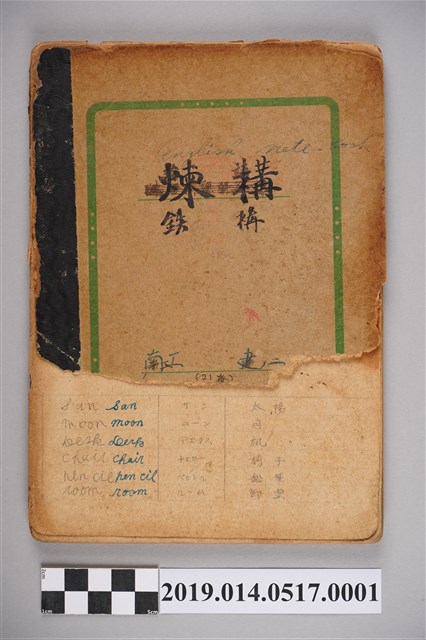 English note-book
煉 構
鉄 構
南江 建二
(21番)
San San サン 太陽
moon moon ムーン 月
Desk Desk デスク 机
Chair Chair チェアー 椅子
pen cil pen cil ペンシル 鉛筆
room room ルーム 部里
2cm
1cm 5cm
2019.014.0517.0001